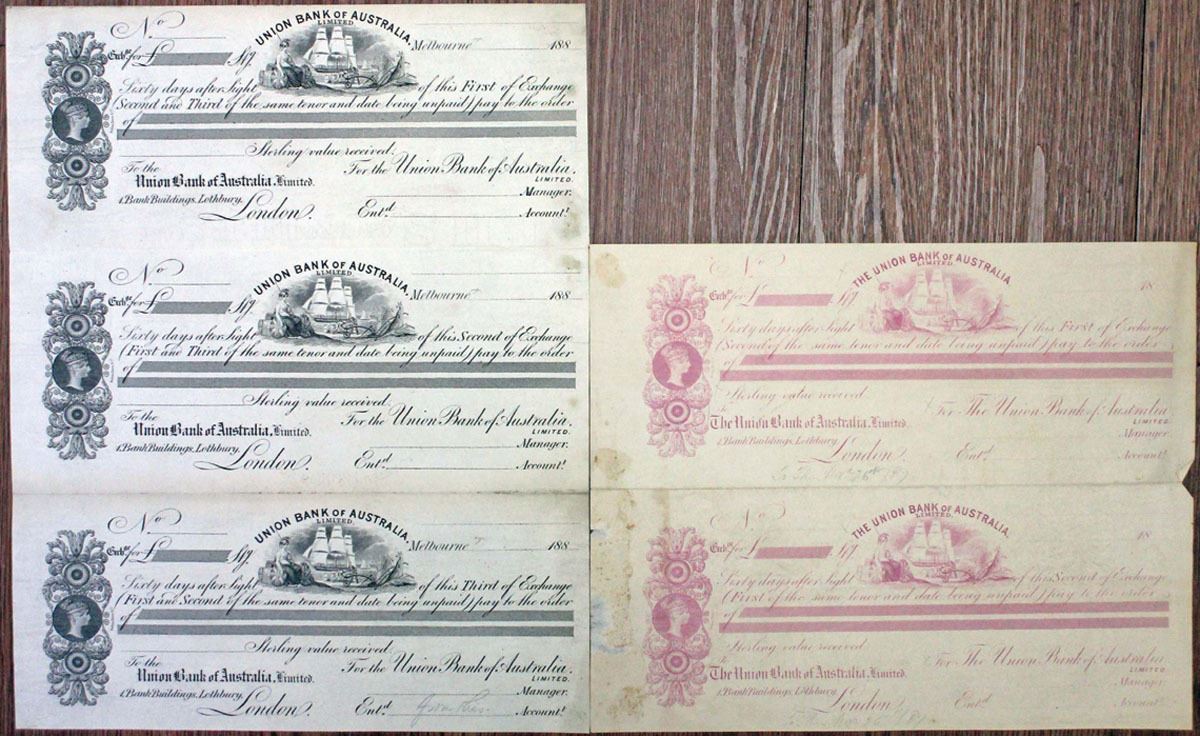 No
UNION BANK OF AUSTRALIA,
LIMITED.
Melbourne 188
Exch.ge for £ Stg.
Sixty days after Sight of this First of Exchange
(Second and Third of the same tenor and date being unpaid) pay to the order
of
Sterling value received.
To the For the Union Bank of Australia.
Union Bank of Australia, Limited. LIMITED.
1, Bank Buildings, Lothbury, Manager.
London. Ent.d Account.t
No
UNION BANK OF AUSTRALIA,
LIMITED.
Melbourne 188
Exch.ge for £ Stg.
Sixty days after Sight of this Second of Exchange
(First and Third of the same tenor and date being unpaid) pay to the order
of
Sterling value received.
To the For the Union Bank of Australia.
Union Bank of Australia, Limited. LIMITED.
1, Bank Buildings, Lothbury, Manager.
London. Ent.d Account.t
No
UNION BANK OF AUSTRALIA,
LIMITED.
Melbourne 188
Exch.ge for £ Stg.
Sixty days after Sight of this Third of Exchange
(First and Second of the same tenor and date being unpaid) pay to the order
of
Sterling value received.
To the For the Union Bank of Australia.
Union Bank of Australia, Limited. LIMITED.
1, Bank Buildings, Lothbury, Manager.
London. Ent.d Account.t
No
THE UNION BANK OF AUSTRALIA,
LIMITED.
18
Exch.ge for £ Stg.
Sixty days after Sight of this First of Exchange
(Second of the same tenor and date being unpaid) pay to the order
of
Sterling value received.
To For The Union Bank of Australia
The Union Bank of Australia, Limited. LIMITED.
1, Bank Buildings, Lothbury, Manager.
London. Ent.d Account.t
No
THE UNION BANK OF AUSTRALIA,
LIMITED.
18
Exch.ge for £ Stg.
Sixty days after Sight of this Second of Exchange
(First of the same tenor and date being unpaid) pay to the order
of
Sterling value received.
To For The Union Bank of Australia
The Union Bank of Australia, Limited. LIMITED.
1, Bank Buildings, Lothbury, Manager.
London. Ent.d Account.t